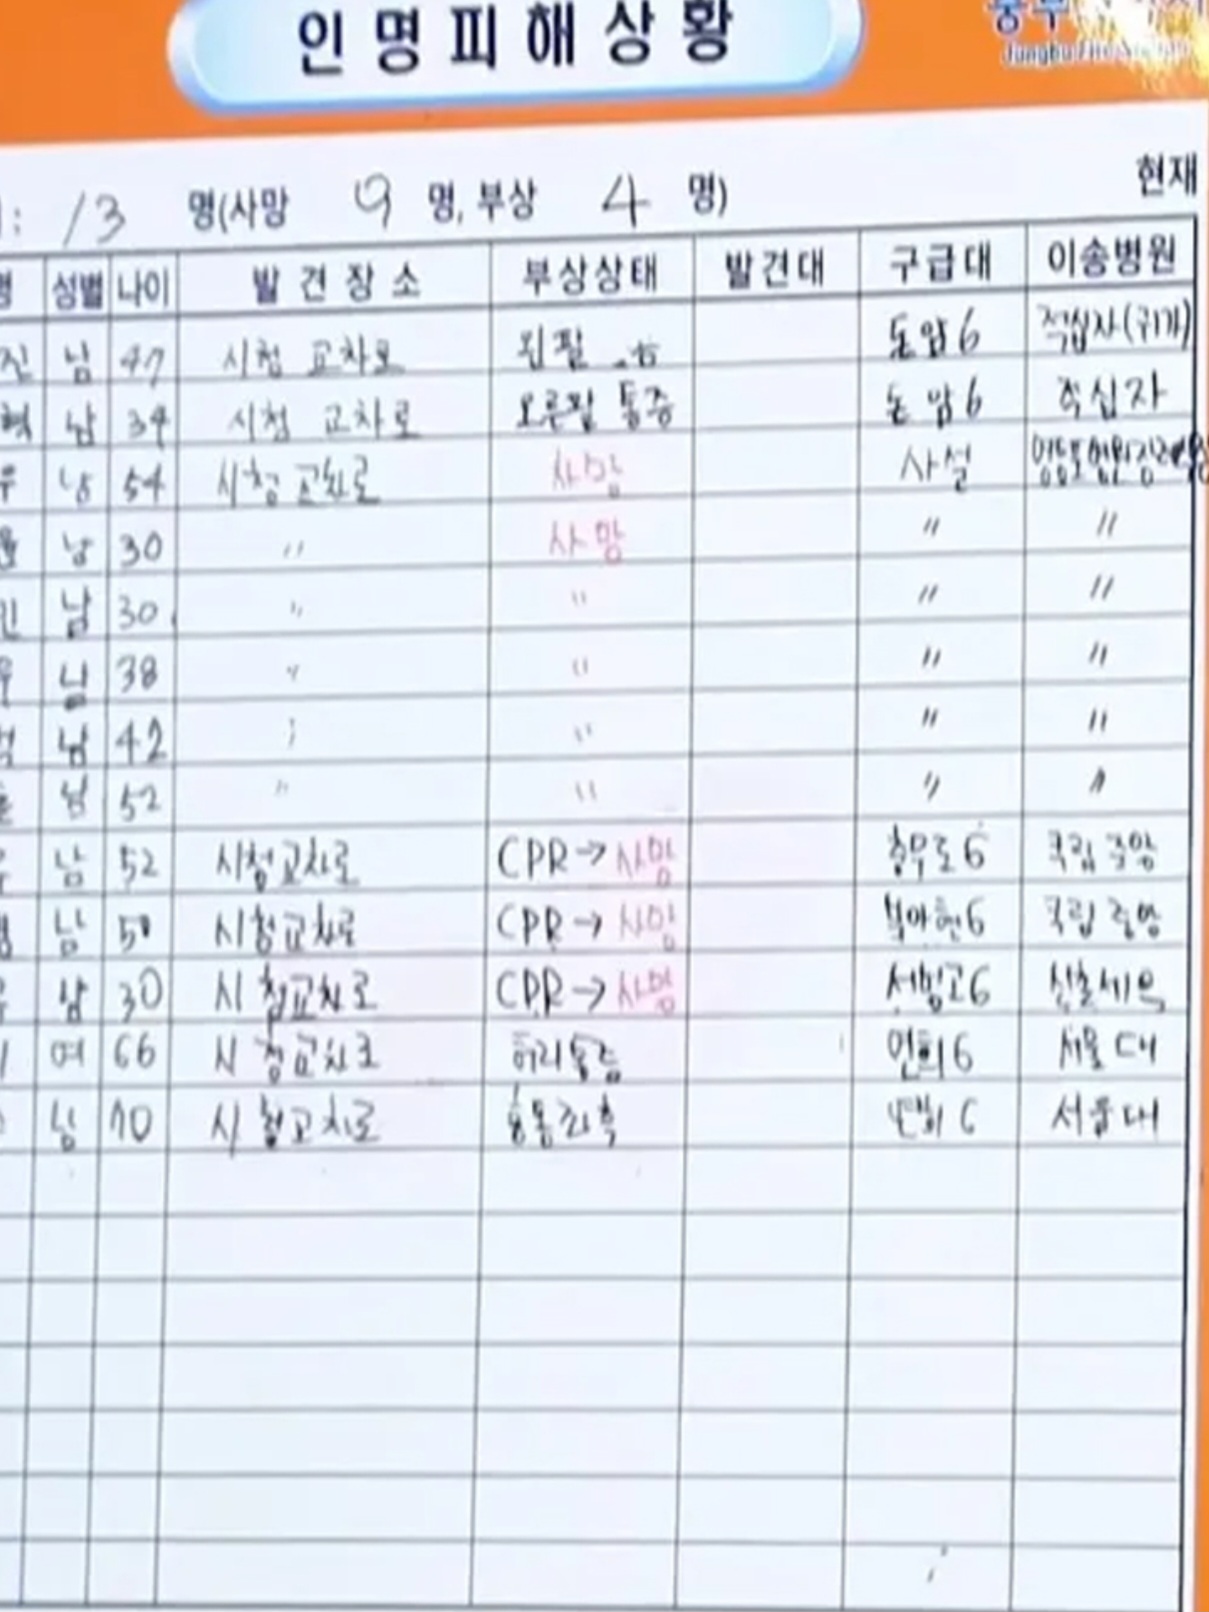 인명피해상황
: 13 명(사망 9 명, 부상 4 명) 현재
성별 나이 발견장소 부상상태 발견대 구급대 이송병원
진 남 47 시청 교차로 왼팔 돈암6 적십자(귀가)
혁 남 34 시청 교차로 오른팔 통증 돈암6 적십자
우 남 54 시청교차로 사망 사설
남 30 〃 사망 〃 〃
민 남 30 〃 〃 〃 〃
남 38 〃 〃 〃 〃
남 42 〃 〃 〃
남 52 〃 〃 〃 〃
남 52 시청교차로 CPR→사망 충무로6 국립중앙
남 5 시청교차로 CPR→사망 북아현6 국립중앙
남 30 시청교차로 CPR→사망 서빙고6 신촌세브
여 66 시청교차로 허리통증 연희6 서울대
남 70 시청교차로 연희6 서울대